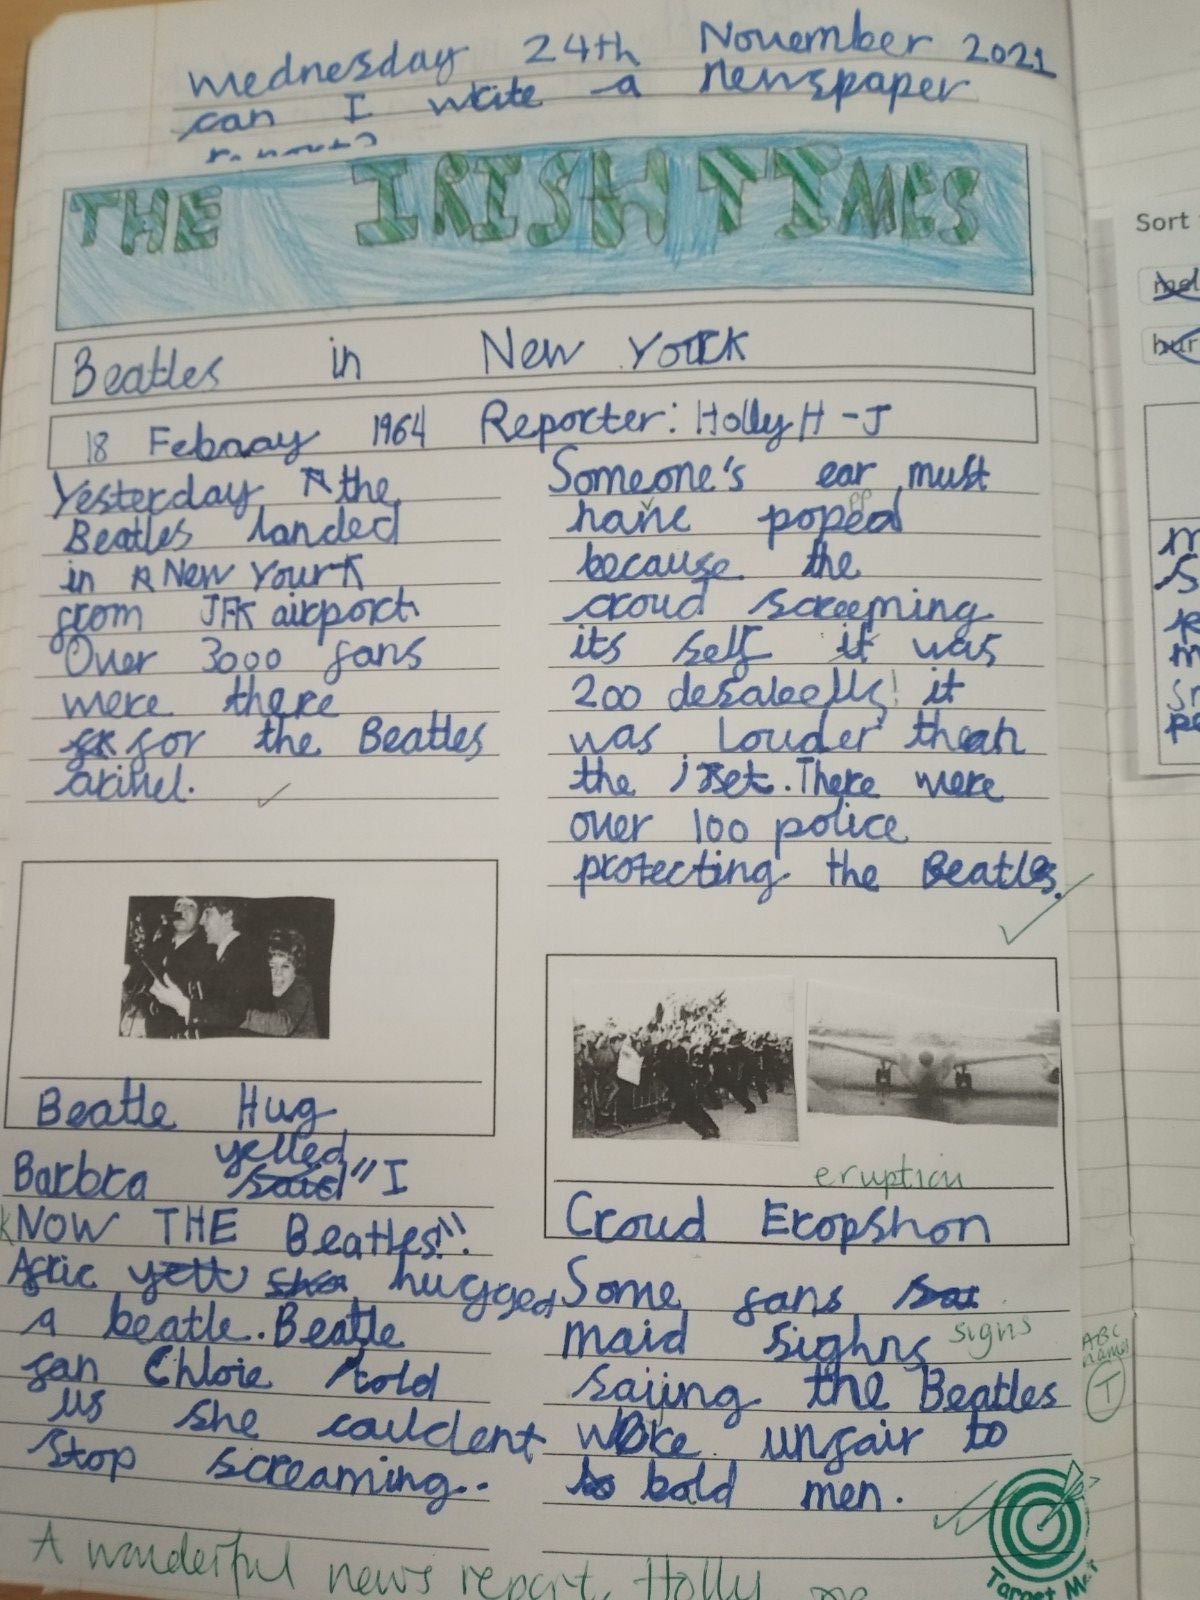 Wednesday 24th November 2021
can I write a newspaper
THE IRISH TIMES
Beatles in New York
18 Febuary 1964 Reporter: Holly H-J
Yesterday the
Beatles landed
in New York
from JFK airport.
Over 3000 fans
were there
for the Beatles
arival.
Beatle Hug
yelled
Barbra said "I
KNOW THE Beatles!!".
hugged
a beatle. Beatle
fan Chloie told
us she couldent
stop screaming..
Someone's ear must
have poped
pp
because the
croud screeming
its self it was
200 desabells! it
was louder than
the jet. There were
over 100 police
protecting the Beatles.
eruption
Croud Eropshon
Some fans
maid sighns signs
saiing the Beatles
were unfair to
bald men.
A wonderful news report, Holly
ABC
name
T
Target Met
Sort